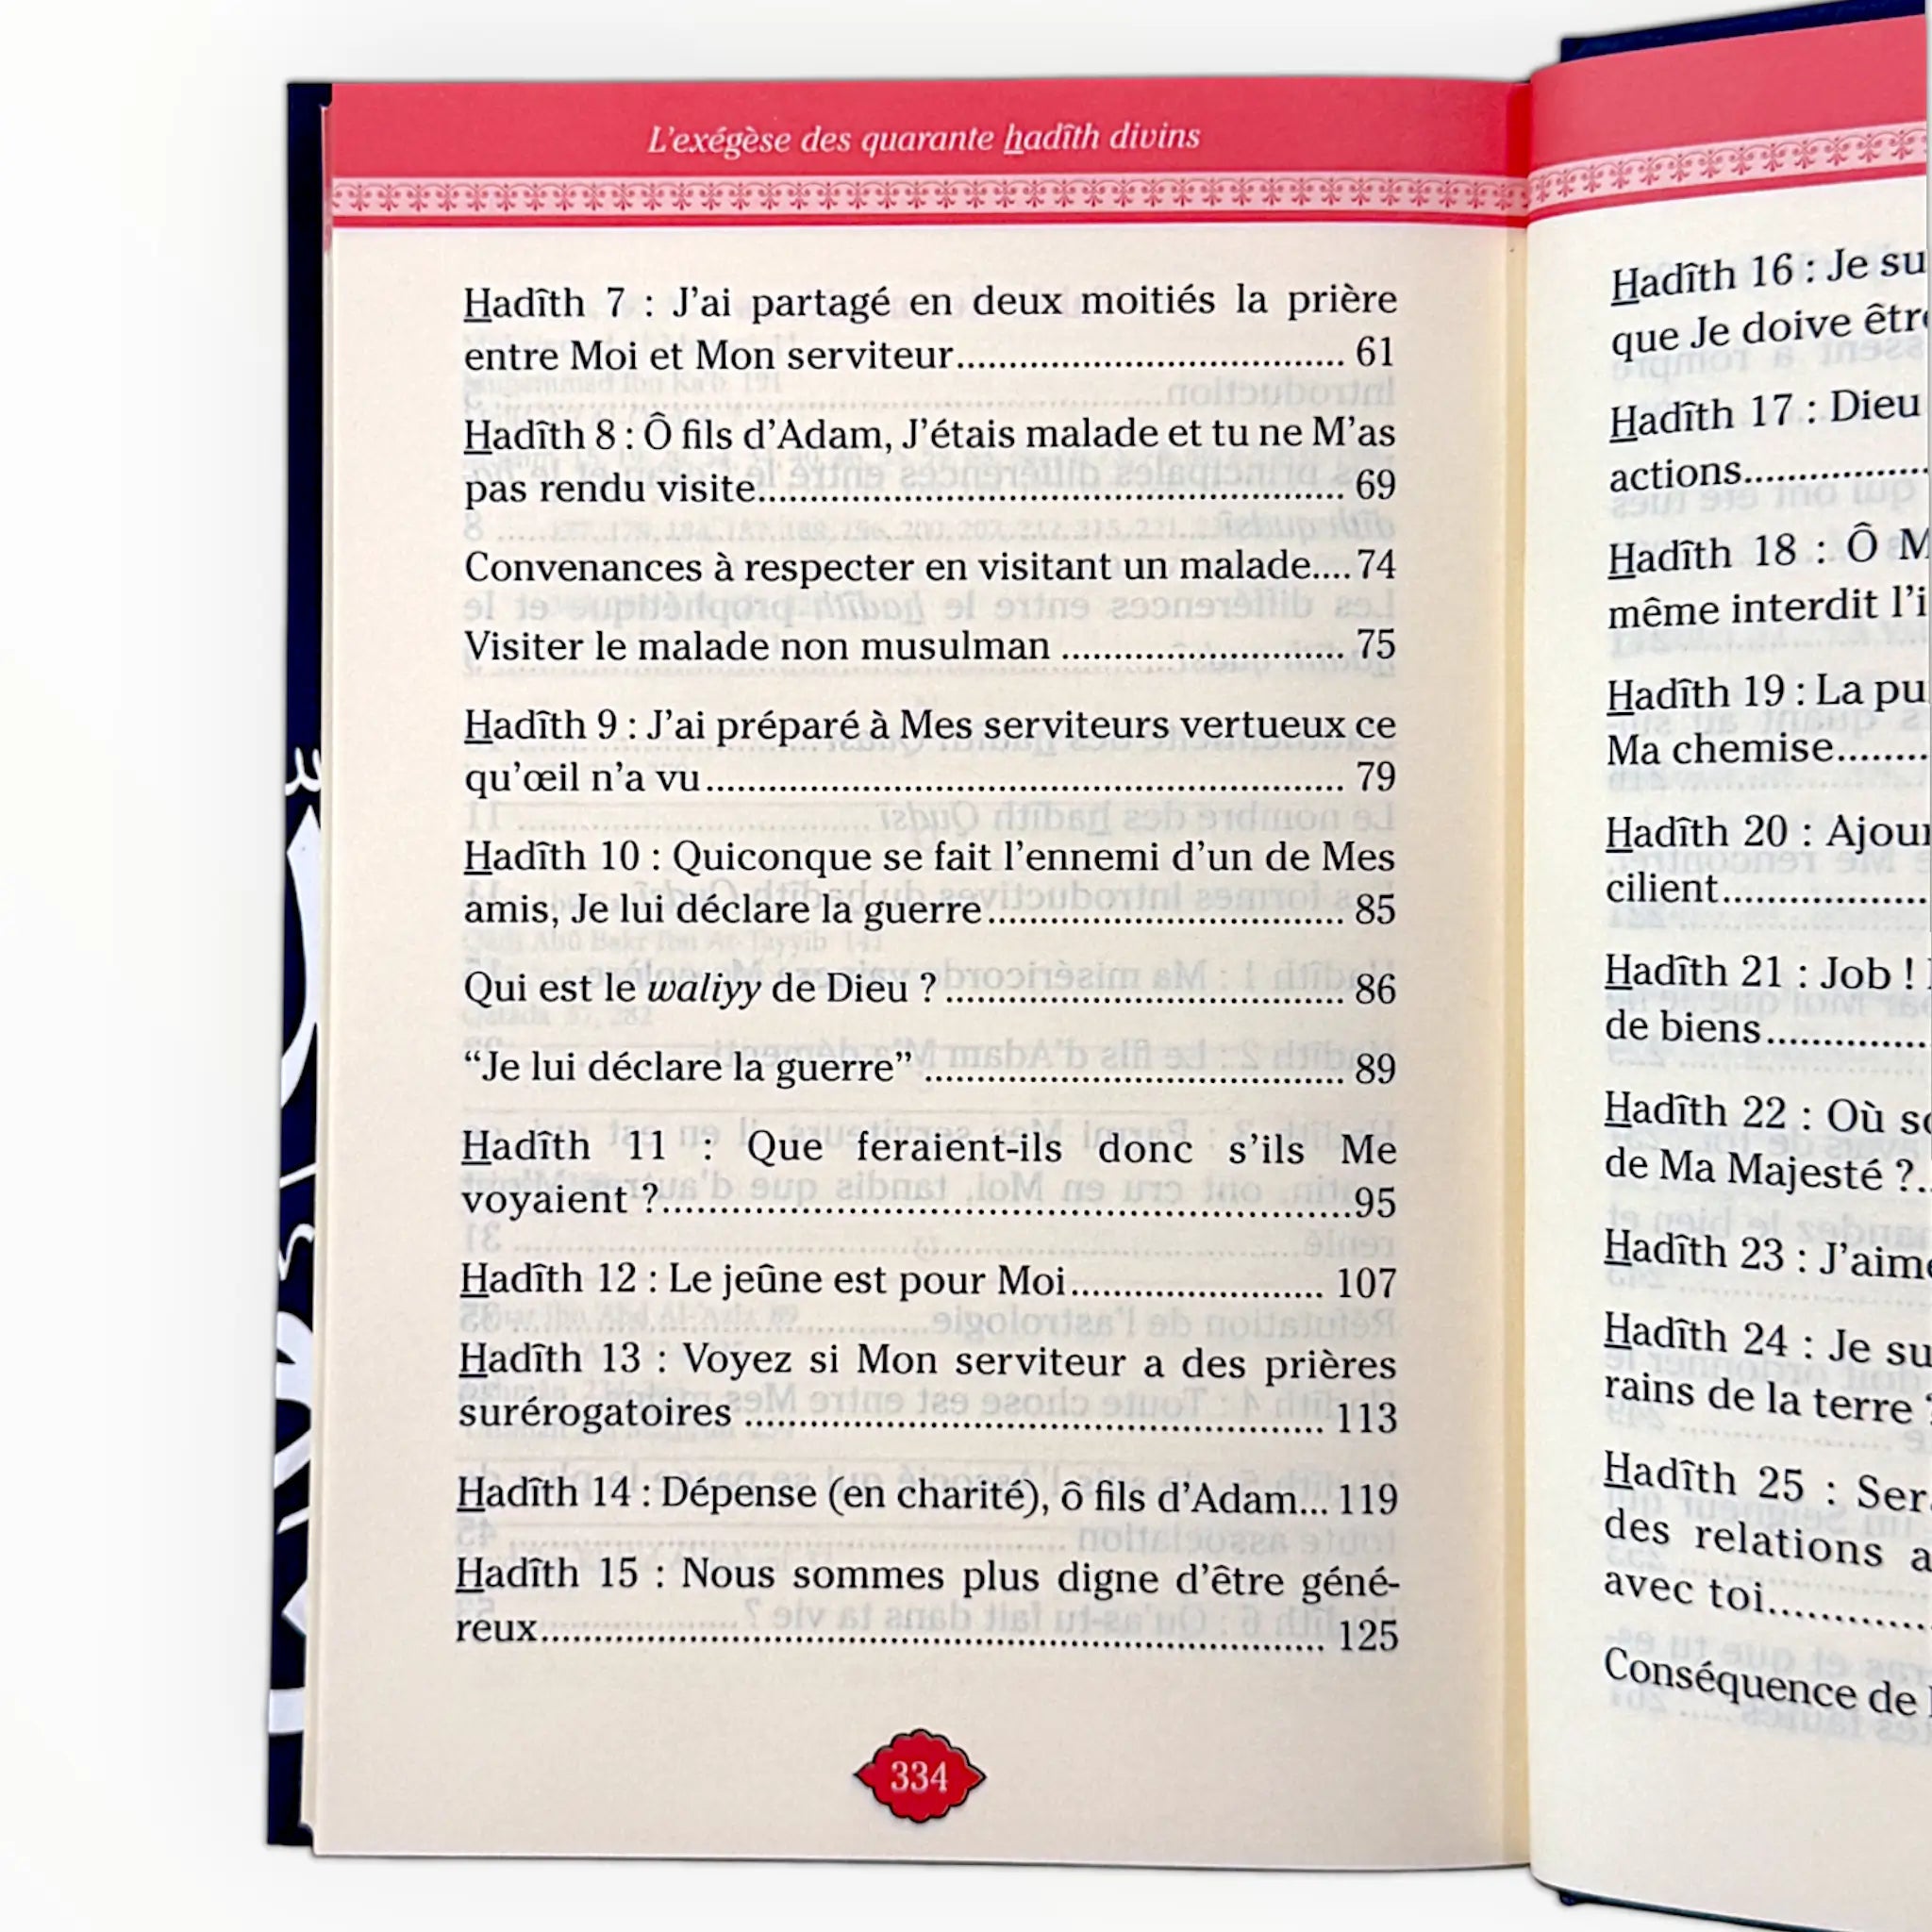 L'exégèse des quarante hadîth divins
Hadîth 7 : J'ai partagé en deux moitiés la prière
entre Moi et Mon serviteur.................................... 61
Hadîth 8 : Ô fils d'Adam, J'étais malade et tu ne M'as
pas rendu visite........................................................ 69
Convenances à respecter en visitant un malade....74
Visiter le malade non musulman ........................... 75
Hadîth 9 : J'ai préparé à Mes serviteurs vertueux ce
qu'œil n'a vu............................................................. 79
Hadîth 10 : Quiconque se fait l'ennemi d'un de Mes
amis, Je lui déclare la guerre.................................. 85
Qui est le waliyy de Dieu ?...................................... 86
“Je lui déclare la guerre”........................................ 89
Hadîth 11 : Que feraient-ils donc s'ils Me
voyaient ?..................................................................95
Hadîth 12 : Le jeûne est pour Moi........................ 107
Hadîth 13 : Voyez si Mon serviteur a des prières
surérogatoires ....................................................... 113
Hadîth 14 : Dépense (en charité), ô fils d'Adam... 119
Hadîth 15 : Nous sommes plus digne d'être géné-
reux........................................................................... 125
334
Hadîth 16 : Je
que Je doive
Hadîth 17 : Dieu
actions..................
Hadîth 18 : Ô
même interdit
Hadîth 19 : La
Ma chemise.........
Hadîth 20 :
cilient....................
Hadîth 21 : Job !
de biens................
Hadîth 22 : Où
de Ma Majesté ?..
Hadîth 23 :
Hadîth 24 : Je
rains de la terre
Hadîth 25 :
des relations
avec toi................
Conséquence de